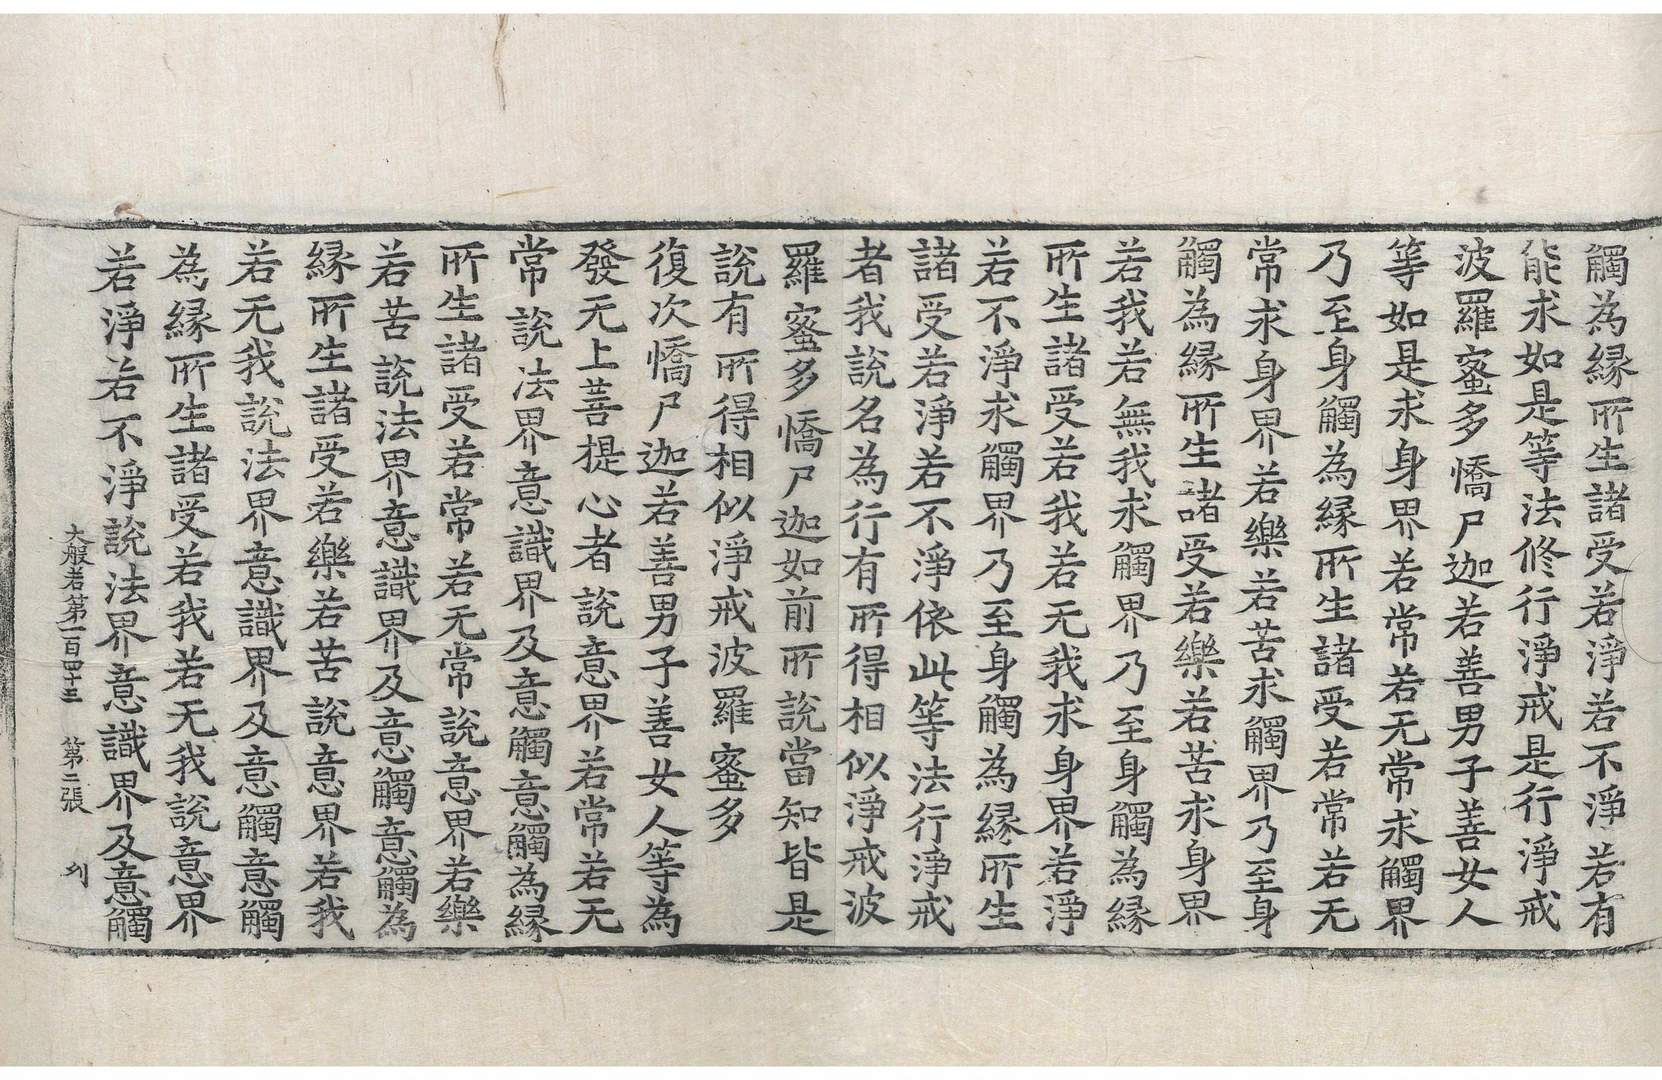 觸為縁所生諸受若淨若不淨若有
能求如是等法修行淨戒是行淨戒
波羅蜜多憍尸迦若善男子善女人
等如是求身界若常若无常求觸界
乃至身觸為縁所生諸受若常若无
常求身界若樂若苦求觸界乃至身
觸為縁所生諸受若樂若苦求身界
若我若無我求觸界乃至身觸為縁
所生諸受若我若无我求身界若淨
若不淨求觸界乃至身觸為縁所生
諸受若淨若不淨依此等法行淨戒
者我說名為行有所得相似淨戒波
羅蜜多憍尸迦如前所說當知皆是
說有所得相似淨戒波羅蜜多
復次憍尸迦若善男子善女人等為
發无上菩提心者說意界若常若无
常說法界意識界及意觸意觸為縁
所生諸受若常若无常說意界若樂
若苦說法界意識界及意觸意觸為
縁所生諸受若樂若苦說意界若我
若无我說法界意識界及意觸意觸
為縁所生諸受若我若无我說意界
若淨若不淨說法界意識界及意觸
大般若第一百四十三　第二張　列